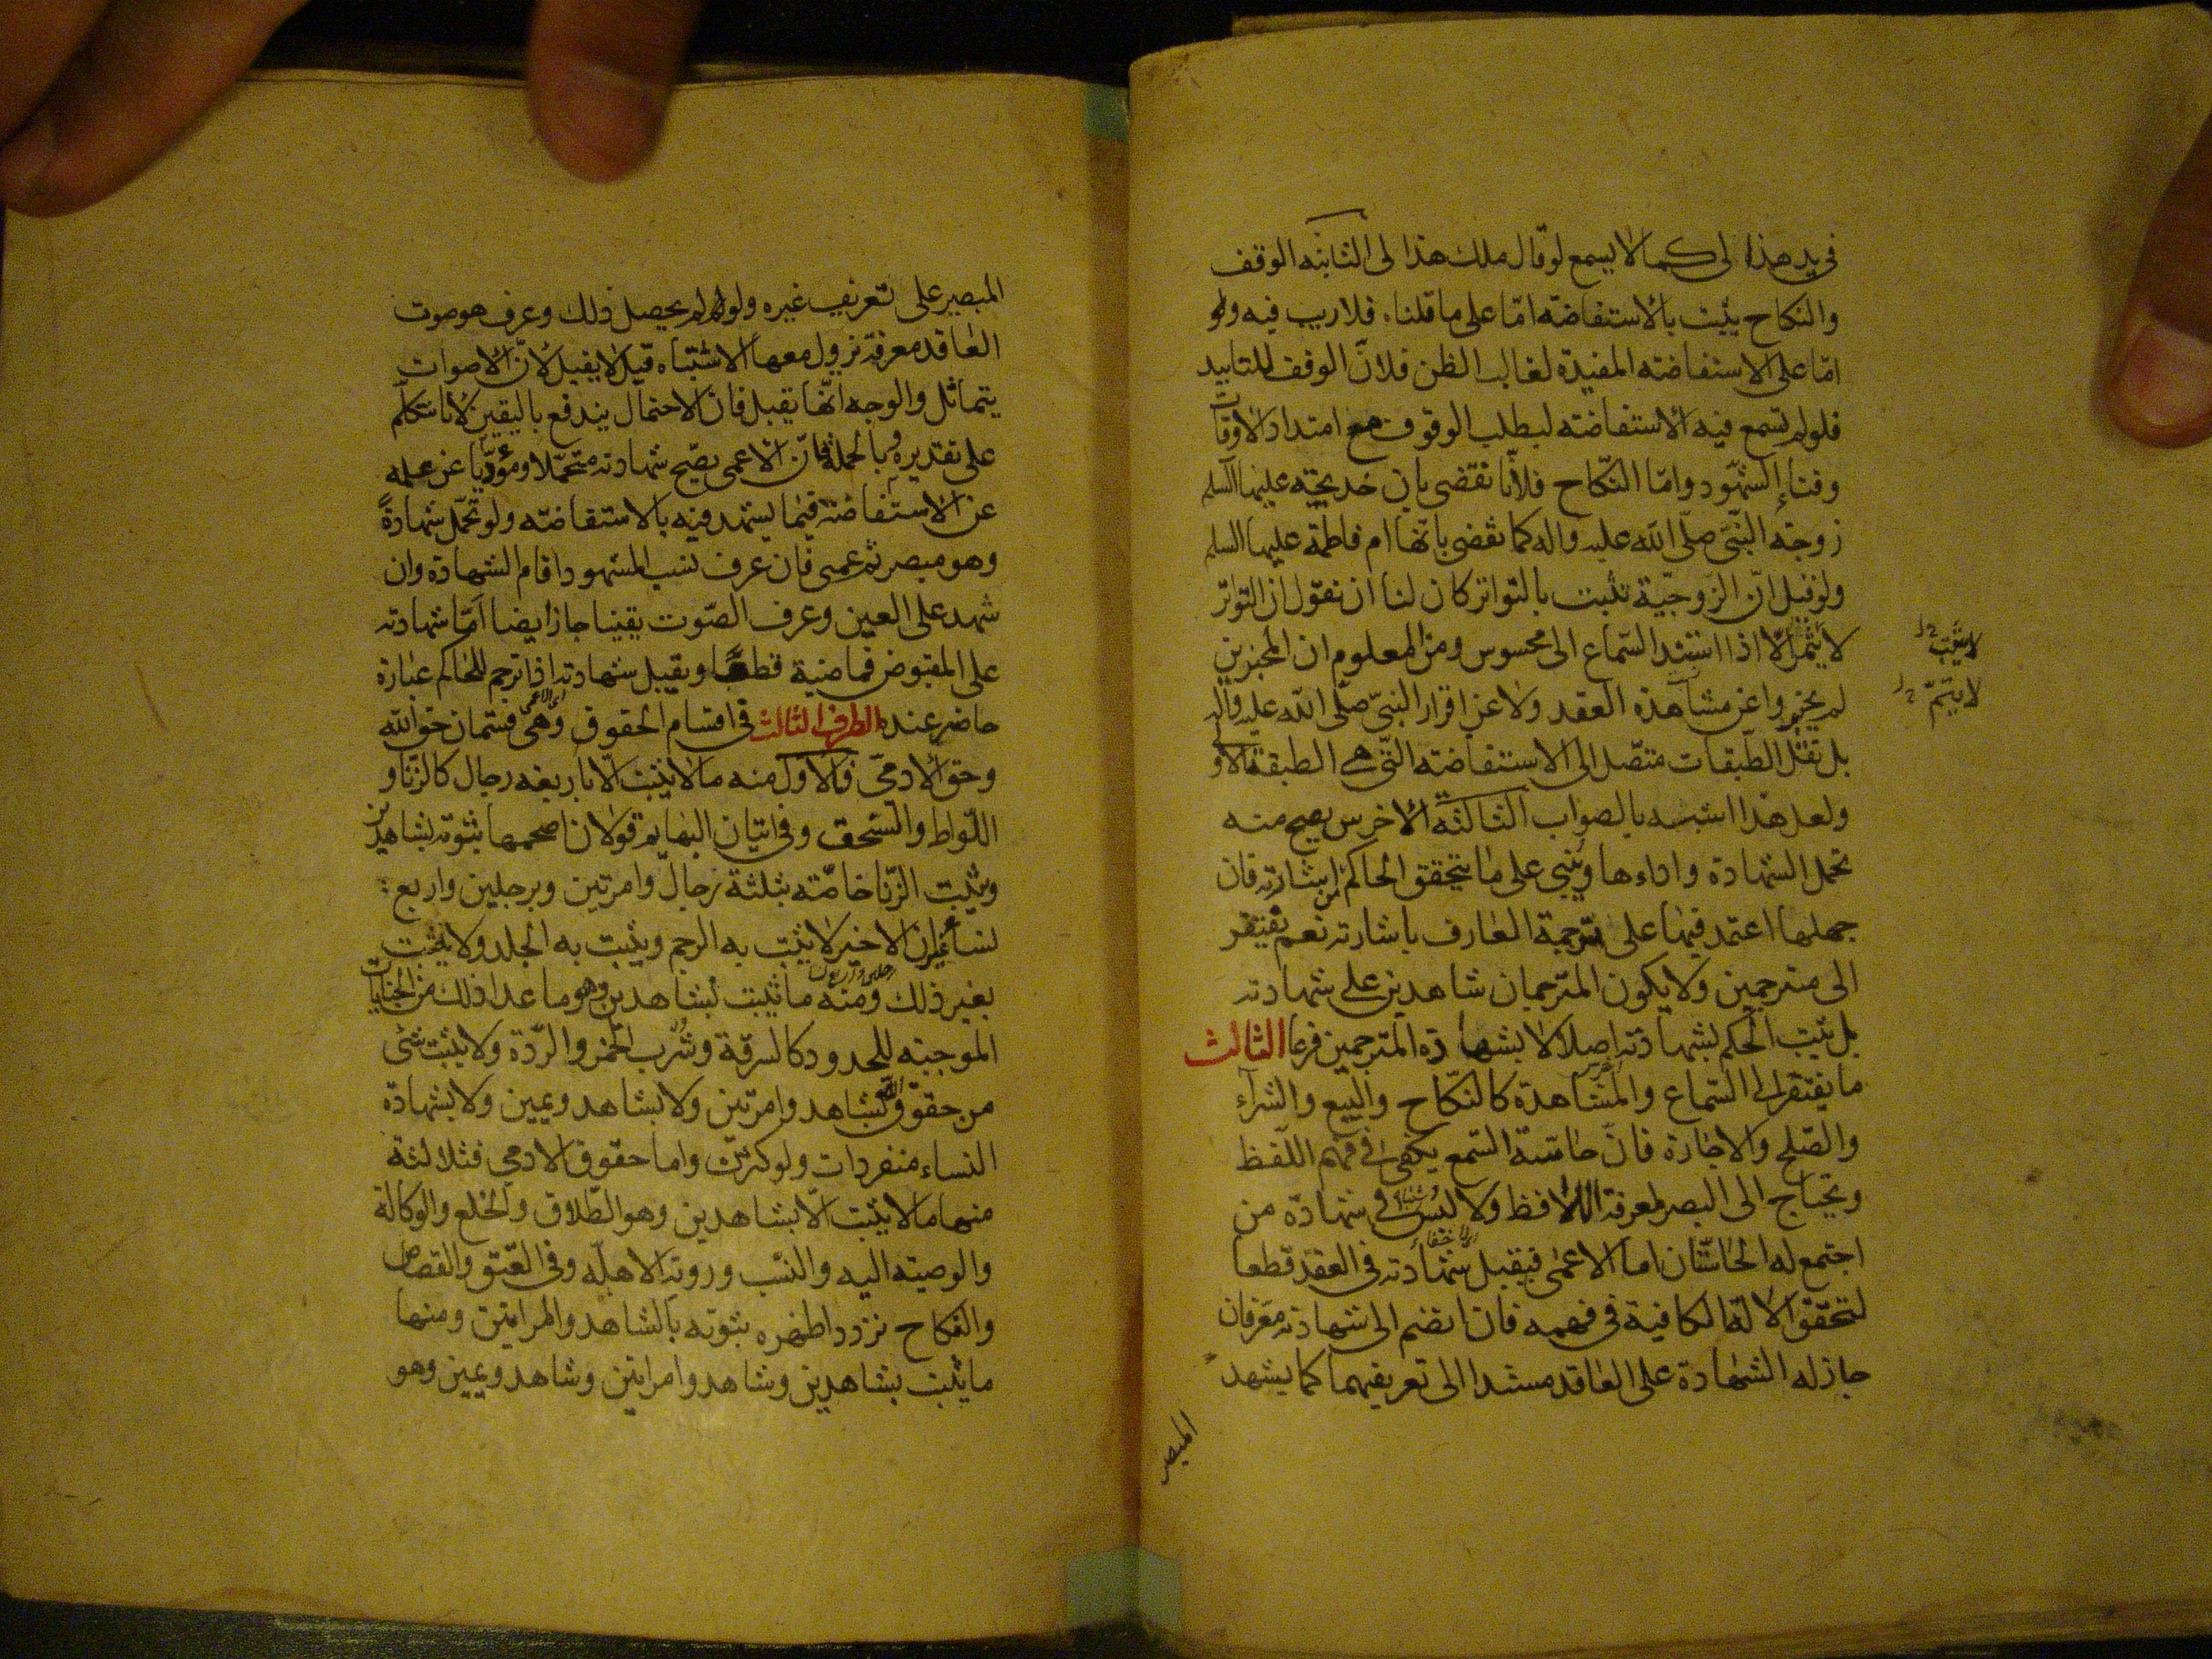 في يد هذا لي كما لا يسمع لو قال ملك هذا لي الثانية الوقف
والنكاح يثبت بالاستفاضة امّا على ما قلناه فلا ريب فيه ولو
امّا على الاستفاضة المفيدة لغالب الظن فلانّ الوقف للتابيد
فلو لم تسمع فيه الاستفاضة لبطلب الوقوف مع امتداد الاوقات
وفناء الشهود وامّا النّكاح فلانّا نقضى بان خديجة عليها السلم
زوجة النّبيّ صلّى الله عليه واله كما نقضى بانّها ام فاطمة عليها السلم
ولو قيل انّ الزّوجيّة تثبت بالتواتر كان لنا ان نقول ان التواتر
لا يثمر الّا اذا استند السّماع الى محسوس ومن المعلوم ان المخبرين
لم يخبروا عن مشاهدة العقد ولا عن اقرار النبيّ صلّى الله عليه واله
بل نقل الطّبقات متصّل الى الاستفاضة التّي هي الطبقة الاو
ولعل هذا اشبه بالصواب الثالثة الاخرس يصح منه
تحمل الشهادة واداءها ويبنى على ما يتحقق الحاكم من اشارته فان
جهلها اعتمد فيها على ترجمة العارف باشارته نعم يفتقر
الى مترجمين ولا يكون المترجمان شاهدين على شهادته
بل يثبت الحكم بشهادته اصلا لا بشهادة المترجمين فرعا الثالث
ما يفتقر الى السّماع والمشاهدة كالنّكاح والبيع والشراء
والصّلح والاجارة فانّ حاسّة السّمع يكفى في فهم اللّفظ
ويحتاج الى البصر لمعرفة اللافظ ولا لبس في شهادة من
اجتمع له الحاسّتان اما الاعمى فيقبل شهادته في العقد قطعا
لتحقق الالة الكافية في فهمه فان انضم الى شهادته معرفان
جاز له الشهادة على العاقد مستندا الى تعريفهما كما يشهد
المبصر
لا يثبت خ ل
لا يتمّ خ ل
المبصر على تعريف غيره ولو لم يحصل ذلك وعرف هو صوت
العاقد معرفة تزول معها الاشتباه قيل لا يقبل لانّ الاصوات
يتماثل والوجه انّها يقبل فان الاحتمال يندفع باليقين لانا نتكلّم
على تقديره وبالجملة فانّ الاعمى يصّح شهادته متحمّلا ومؤدّيا عن علمه
عن الاستفاضة فيما يشهد فيه بالاستفاضة ولو تحمّل شهادةً
وهو مبصر ثم عمى فان عرف نسب المشهود اقام الشهادة وان
شهد على العين وعرف الصّوت يقينا جاز ايضا امّا شهادته
على المقبوض فماضية قطعا ويقبل شهادته اذا ترجم للحاكم عبارة
حاضر عنده الطرف الثالث في اقسام الحقوق وهي قسمان حق الله
وحق الادميّ فالاول منه ما لا يثبت الّا باربعة رجال كالزّنا و
اللّواط والسّحق وفي اتيان البهايم قولان اصحهما ثبوته بشاهدين
ويثبت الزّنا خاصّة بثلثة رجال وامرتين وبرجلين واربع
نساء غير ان الاخير لا يثبت به الرجم ويثبت به الجلد ولا يثبت
بغير ذلك ومنه ما يثبت بشاهدين وهو ما عدا ذلك من الجنايات
الموجبة للحدود كالسرقة وشُرب الخمر والرّدّة ولا يثبت شئ
من حقوق الله بشاهد وامرتين ولا بشاهد ويمين ولا بشهادة
النساء منفردات ولو كثرن واما حقوق الادمي فثلاثة
منها ما لا يثبت الّا بشاهدين وهو الطّلاق والخلع والوكالة
والوصية اليه والنسّب وروية الاهلّه وفي العتق والقصاص
والنكاح تردد اظهره ثبوته بالشاهد والمراتين ومنها
ما يثبت بشاهدين وشاهد وامراتين وشاهد ويمين وهو